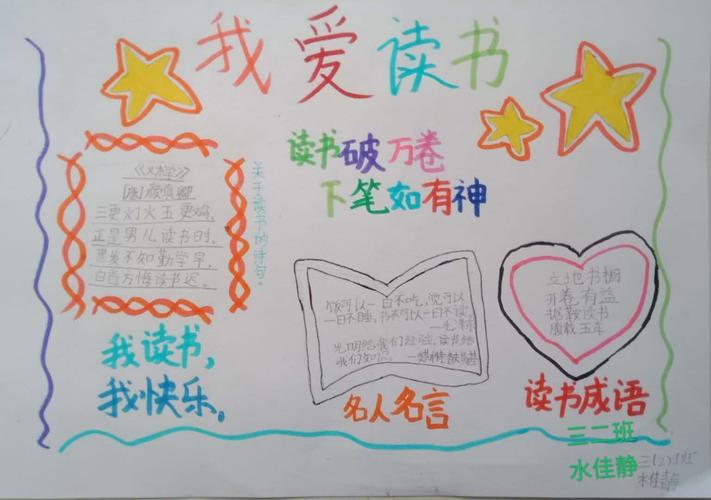 我爱读书
读书破万卷
下笔如有神
《劝学》
[唐]颜真卿
三更灯火五更鸡,
正是男儿读书时。
黑发不知勤学早,
白首方悔读书迟。
关于读书的诗句。
我读书,
我快乐。
饭可以一日不吃,觉可以
一日不睡,书不可以一日不读。
——毛泽东
光明给我们经验,读书给
我们知识。
名人名言
立地书橱
开卷有益
据鞍读书
腹载五车
读书成语
三二班
水佳静
三(2)班
水佳静